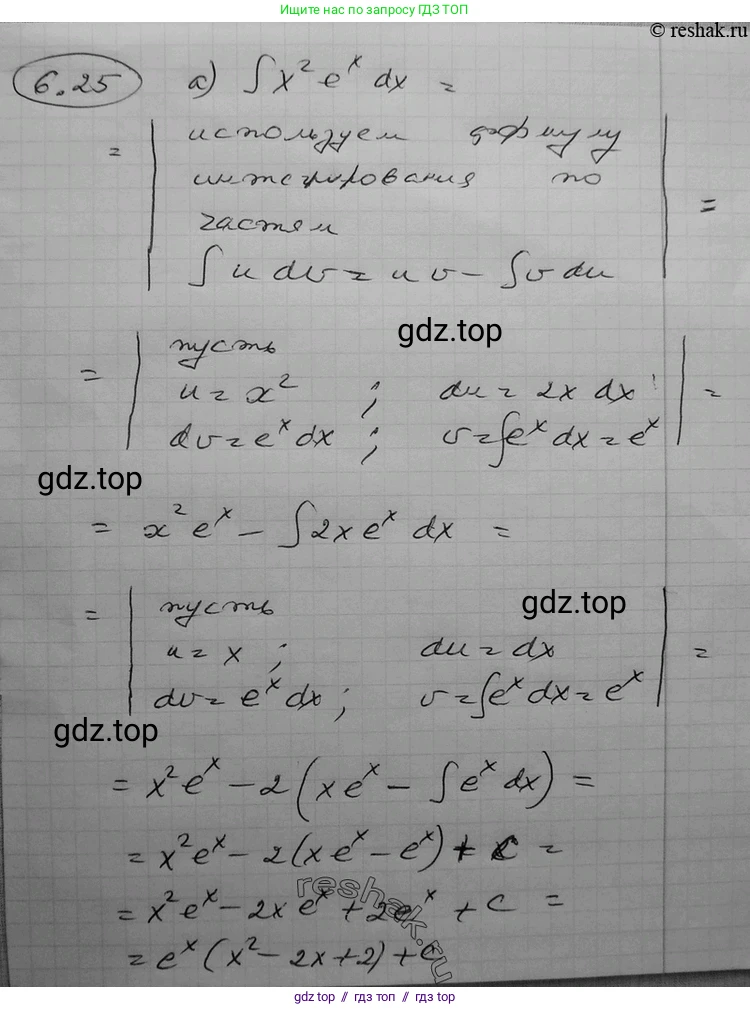 Ищите нас по запросу ГДЗ ТОП
© reshak.ru
6.25 а) ∫ x² eˣ dx =
= | используем формулу
интегрирования по
частям
∫ u dv = u v - ∫ v du | =
gdz.top
= | пусть
u = x² ; du = 2x dx
dv = eˣ dx ; v = ∫ eˣ dx = eˣ | =
gdz.top
= x² eˣ - ∫ 2x eˣ dx =
= | пусть
gdz.top
u = x ; du = dx
dv = eˣ dx ; v = ∫ eˣ dx = eˣ | =
gdz.top
= x² eˣ - 2 (x eˣ - ∫ eˣ dx) =
= x² eˣ - 2 (x eˣ - eˣ) + C =
reshak.ru
= x² eˣ - 2x eˣ + 2eˣ + C =
= eˣ (x² - 2x + 2) + C
gdz top // гдз топ // gdz top